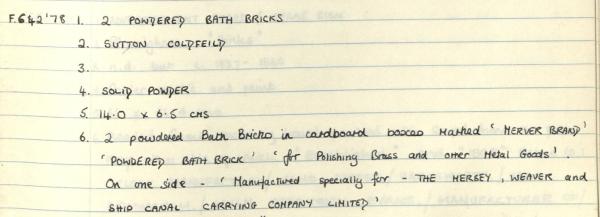 F.642'78 1. 2 POWDERED BATH BRICKS
2. SUTTON COLDFEILD
3.
4. SOLID POWDER
5. 14.0 x 6.5 CMS
6. 2 powdered Bath Bricks in cardboard boxes Marked 'MERVER BRAND'
'POWDERED BATH BRICK' 'for Polishing Brass and other Metal Goods'.
On one side - 'Manufactured specially for - THE MERSEY, WEAVER and
SHIP CANAL CARRYING COMPANY LIMITED'